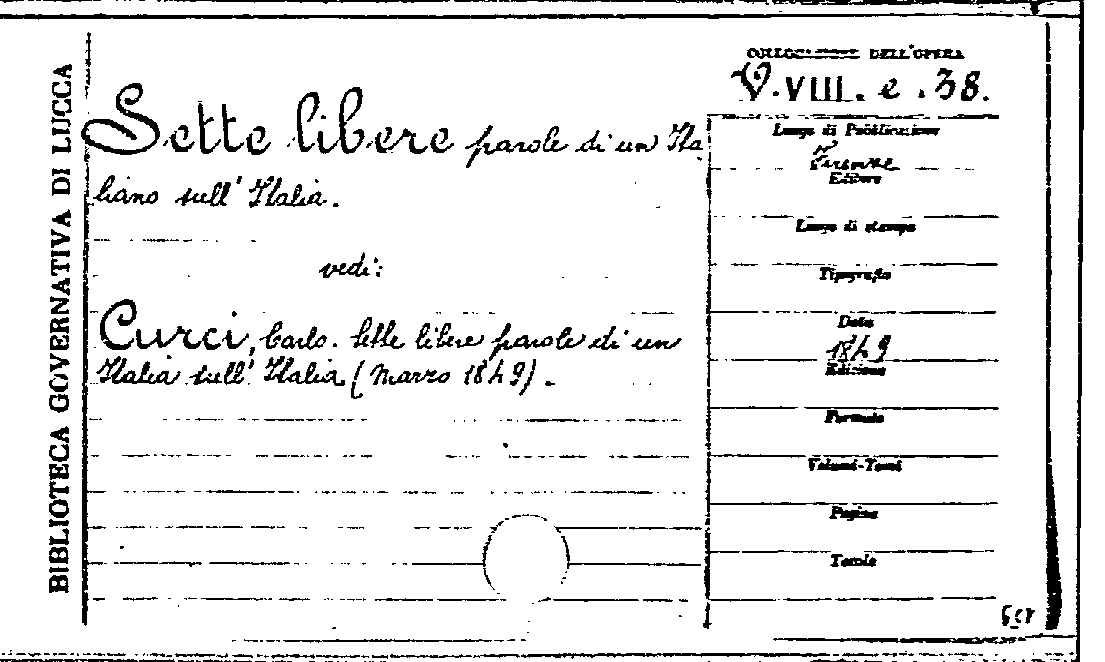 BIBLIOTECA GOVERNATIVA DI LUCCA
COLLOCAZIONE DELL'OPERA
V.VIII. e .38.
Sette libere parole di un Ita
liano sull' Italia.
vedi:
Curci, Carlo. Sette libere parole di un
Italia sull' Italia (Marzo 1849).
Luogo di Pubblicazione
Firenze
Editore
Luogo di stampa
Tipografia
Data
1849
Edizione
Formato
Volumi-Tomi
Pagine
Tavole